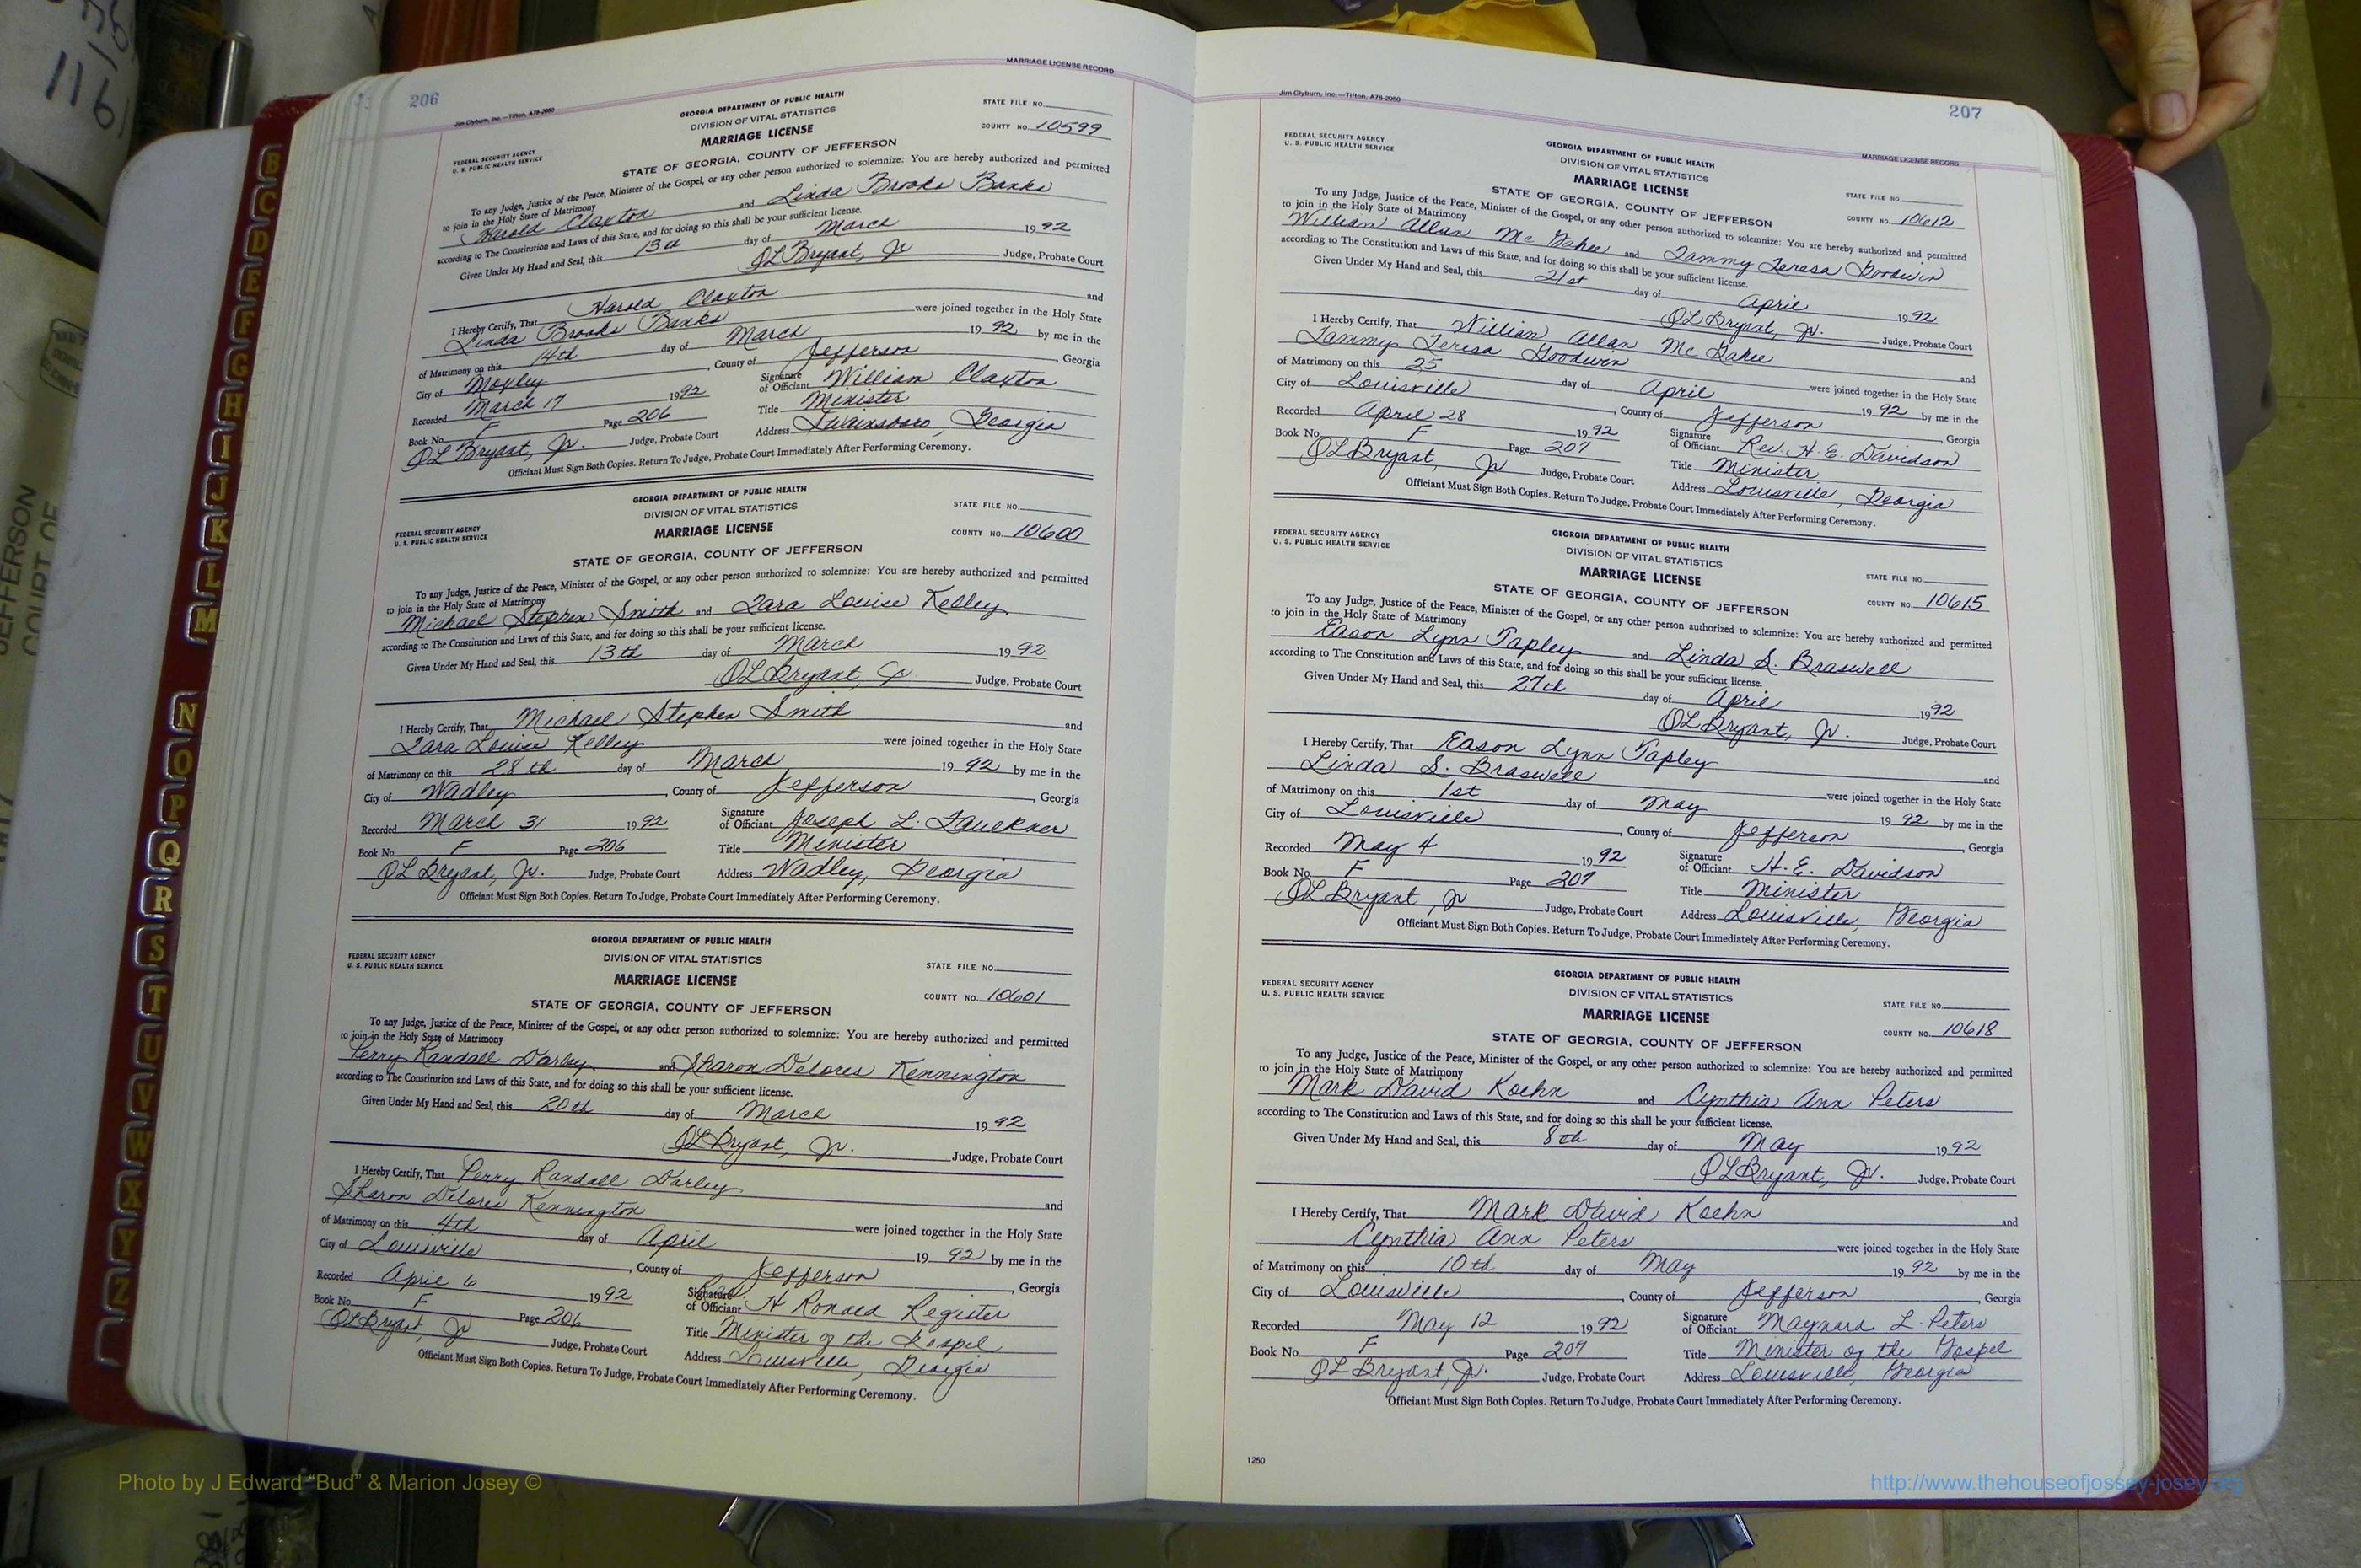 206
Jim Clyburn, Inc.—Tifton, A78-2950
MARRIAGE LICENSE RECORD
GEORGIA DEPARTMENT OF PUBLIC HEALTH
DIVISION OF VITAL STATISTICS
MARRIAGE LICENSE
STATE OF GEORGIA, COUNTY OF JEFFERSON
FEDERAL SECURITY AGENCY
U. S. PUBLIC HEALTH SERVICE
STATE FILE NO.
COUNTY NO. 10599
To any Judge, Justice of the Peace, Minister of the Gospel, or any other person authorized to solemnize: You are hereby authorized and permitted
to join in the Holy State of Matrimony
Harold Claxton and Linda Brooks Banks
according to The Constitution and Laws of this State, and for doing so this shall be your sufficient license.
Given Under My Hand and Seal, this 13th day of March 1992
QL Bryant, Jr Judge, Probate Court
I Hereby Certify, That Harold Claxton and
Linda Brooks Banks were joined together in the Holy State
of Matrimony on this 14th day of March 1992 by me in the
City of Moxley, County of Jefferson, Georgia
Recorded March 17 1992 Signature of Officiant William Claxton
Book No. F Page 206 Title Minister
QL Bryant, Jr. Judge, Probate Court Address Swainsboro, Georgia
Officiant Must Sign Both Copies. Return To Judge, Probate Court Immediately After Performing Ceremony.
GEORGIA DEPARTMENT OF PUBLIC HEALTH
DIVISION OF VITAL STATISTICS
MARRIAGE LICENSE
STATE OF GEORGIA, COUNTY OF JEFFERSON
FEDERAL SECURITY AGENCY
U. S. PUBLIC HEALTH SERVICE
STATE FILE NO.
COUNTY NO. 10600
To any Judge, Justice of the Peace, Minister of the Gospel, or any other person authorized to solemnize: You are hereby authorized and permitted
to join in the Holy State of Matrimony
Michael Stephen Smith and Tara Louise Kelley
according to The Constitution and Laws of this State, and for doing so this shall be your sufficient license.
Given Under My Hand and Seal, this 13th day of March 1992
QL Bryant, Jr. Judge, Probate Court
I Hereby Certify, That Michael Stephen Smith and
Tara Louise Kelley were joined together in the Holy State
of Matrimony on this 28th day of March 1992 by me in the
City of Wadley, County of Jefferson, Georgia
Recorded March 31 1992 Signature of Officiant Joseph L. Faulkner
Book No. F Page 206 Title Minister
QL Bryant, Jr. Judge, Probate Court Address Wadley, Georgia
Officiant Must Sign Both Copies. Return To Judge, Probate Court Immediately After Performing Ceremony.
GEORGIA DEPARTMENT OF PUBLIC HEALTH
DIVISION OF VITAL STATISTICS
MARRIAGE LICENSE
STATE OF GEORGIA, COUNTY OF JEFFERSON
FEDERAL SECURITY AGENCY
U. S. PUBLIC HEALTH SERVICE
STATE FILE NO.
COUNTY NO. 10601
To any Judge, Justice of the Peace, Minister of the Gospel, or any other person authorized to solemnize: You are hereby authorized and permitted
to join in the Holy State of Matrimony
Perry Randall Darley and Sharon Delores Kennington
according to The Constitution and Laws of this State, and for doing so this shall be your sufficient license.
Given Under My Hand and Seal, this 20th day of March 1992
QL Bryant, Jr. Judge, Probate Court
I Hereby Certify, That Perry Randall Darley and
Sharon Delores Kennington were joined together in the Holy State
of Matrimony on this 4th day of April 1992 by me in the
City of Louisville, County of Jefferson, Georgia
Recorded April 6 1992 Signature of Officiant H Ronald Register
Book No. F Page 206 Title Minister of the Gospel
QL Bryant, Jr Judge, Probate Court Address Louisville, Georgia
Officiant Must Sign Both Copies. Return To Judge, Probate Court Immediately After Performing Ceremony.
Jim Clyburn, Inc.—Tifton, A78-2950
207
MARRIAGE LICENSE RECORD
FEDERAL SECURITY AGENCY
U. S. PUBLIC HEALTH SERVICE
GEORGIA DEPARTMENT OF PUBLIC HEALTH
DIVISION OF VITAL STATISTICS
MARRIAGE LICENSE
STATE OF GEORGIA, COUNTY OF JEFFERSON
STATE FILE NO.
COUNTY NO. 10612
To any Judge, Justice of the Peace, Minister of the Gospel, or any other person authorized to solemnize: You are hereby authorized and permitted
to join in the Holy State of Matrimony
William Allan McGahee and Tammy Teresa Goodwin
according to The Constitution and Laws of this State, and for doing so this shall be your sufficient license.
Given Under My Hand and Seal, this 21st day of April 1992
QL Bryant, Jr. Judge, Probate Court
I Hereby Certify, That William Allan McGahee and
Tammy Teresa Goodwin were joined together in the Holy State
of Matrimony on this 25 day of April 1992 by me in the
City of Louisville, County of Jefferson, Georgia
Recorded April 28 1992 Signature of Officiant Rev. H. E. Davidson
Book No. F Page 207 Title Minister
QL Bryant, Jr Judge, Probate Court Address Louisville, Georgia
Officiant Must Sign Both Copies. Return To Judge, Probate Court Immediately After Performing Ceremony.
FEDERAL SECURITY AGENCY
U. S. PUBLIC HEALTH SERVICE
GEORGIA DEPARTMENT OF PUBLIC HEALTH
DIVISION OF VITAL STATISTICS
MARRIAGE LICENSE
STATE OF GEORGIA, COUNTY OF JEFFERSON
STATE FILE NO.
COUNTY NO. 10615
To any Judge, Justice of the Peace, Minister of the Gospel, or any other person authorized to solemnize: You are hereby authorized and permitted
to join in the Holy State of Matrimony
Eason Lynn Tapley and Linda S. Braswell
according to The Constitution and Laws of this State, and for doing so this shall be your sufficient license.
Given Under My Hand and Seal, this 27th day of April 1992
QL Bryant, Jr. Judge, Probate Court
I Hereby Certify, That Eason Lynn Tapley and
Linda S. Braswell were joined together in the Holy State
of Matrimony on this 1st day of May 1992 by me in the
City of Louisville, County of Jefferson, Georgia
Recorded May 4 1992 Signature of Officiant H. E. Davidson
Book No. F Page 207 Title Minister
QL Bryant, Jr Judge, Probate Court Address Louisville, Georgia
Officiant Must Sign Both Copies. Return To Judge, Probate Court Immediately After Performing Ceremony.
FEDERAL SECURITY AGENCY
U. S. PUBLIC HEALTH SERVICE
GEORGIA DEPARTMENT OF PUBLIC HEALTH
DIVISION OF VITAL STATISTICS
MARRIAGE LICENSE
STATE OF GEORGIA, COUNTY OF JEFFERSON
STATE FILE NO.
COUNTY NO. 10618
To any Judge, Justice of the Peace, Minister of the Gospel, or any other person authorized to solemnize: You are hereby authorized and permitted
to join in the Holy State of Matrimony
Mark David Koehn and Cynthia Ann Peters
according to The Constitution and Laws of this State, and for doing so this shall be your sufficient license.
Given Under My Hand and Seal, this 8th day of May 1992
QL Bryant, Jr. Judge, Probate Court
I Hereby Certify, That Mark David Koehn and
Cynthia Ann Peters were joined together in the Holy State
of Matrimony on this 10th day of May 1992 by me in the
City of Louisville, County of Jefferson, Georgia
Recorded May 12 1992 Signature of Officiant Maynard L. Peters
Book No. F Page 207 Title Minister of the Gospel
QL Bryant, Jr. Judge, Probate Court Address Louisville, Georgia
Officiant Must Sign Both Copies. Return To Judge, Probate Court Immediately After Performing Ceremony.
1250
B
C
D
E
F
G
H
I
J
K
L
M
N
O
P
Q
R
S
T
U
V
W
X
Y
Z
JEFFERSON
COURT OF
Photo by J Edward "Bud" & Marion Josey ©
http://www.thehouseofjossey-josey.org